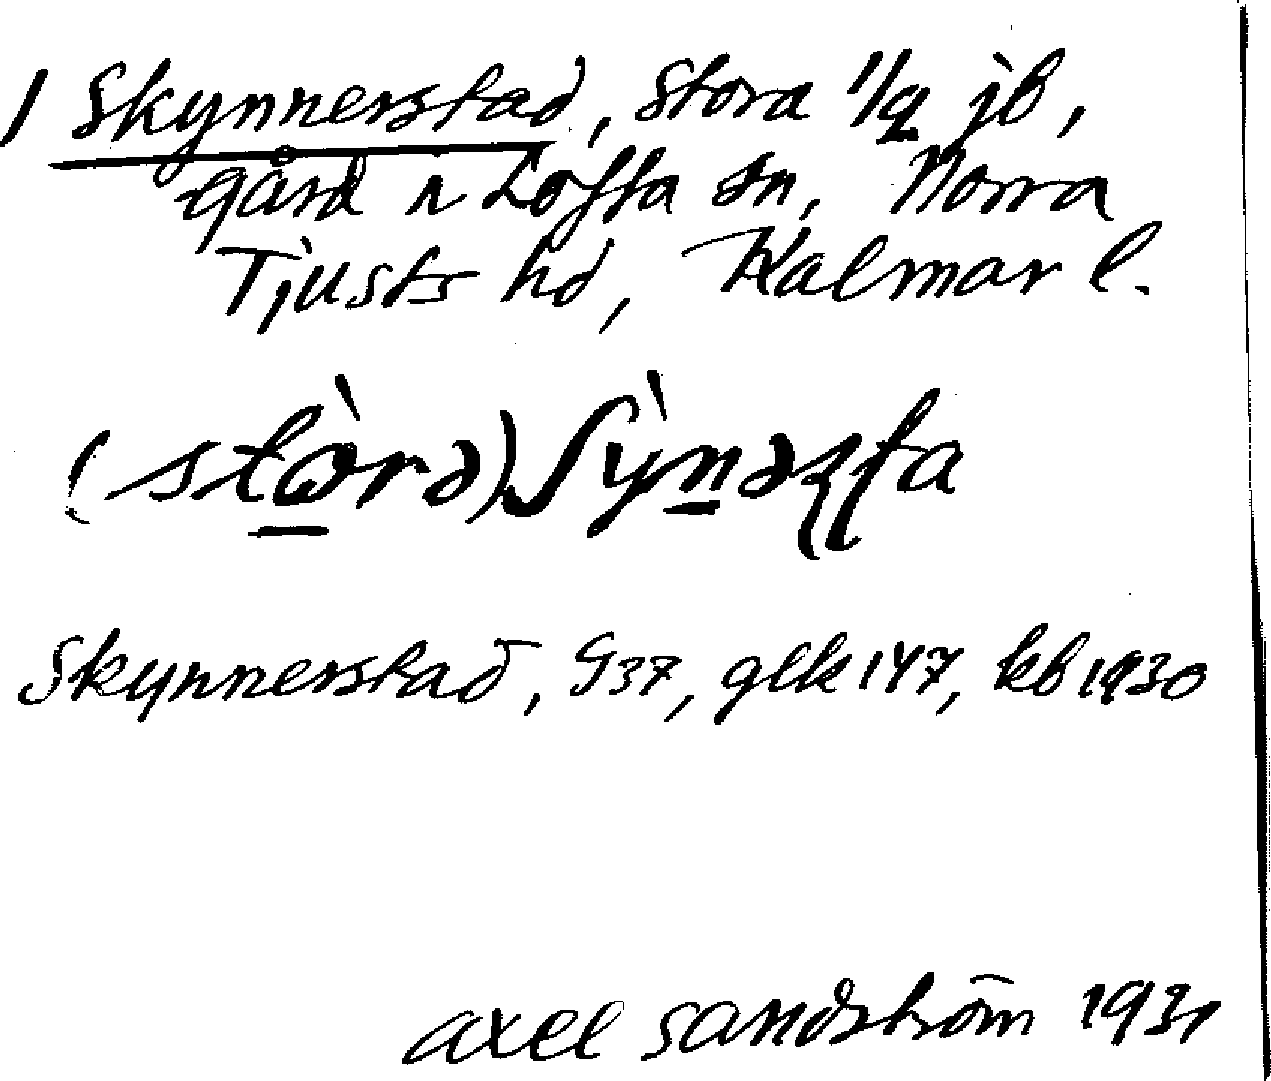 1 Skynnerstad, Stora 1/2 jb,
gård i Loffta sn, Norra
Tjusts hd, Kalmar l.
(stòrə) ʃỳnəʂʈa
Skynnerstad, G37, glk 147, kb 1930
Axel Sandström 1931